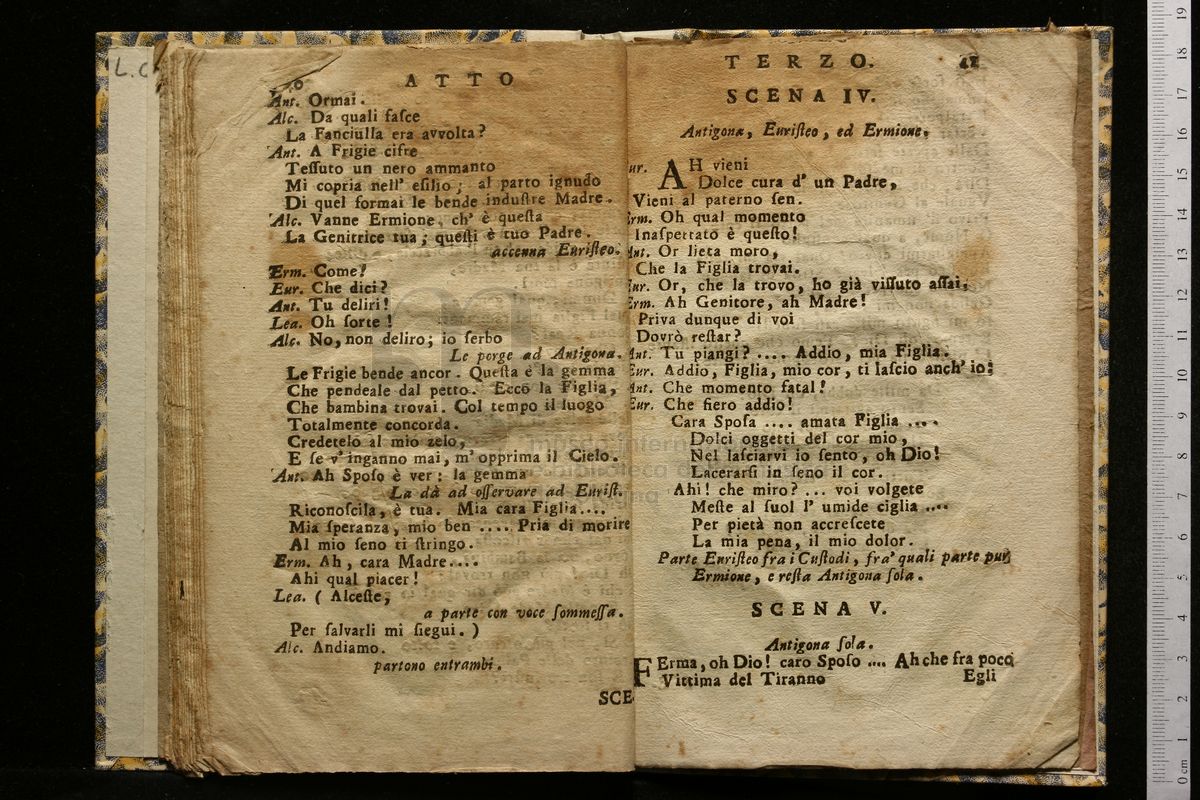 L. C
ATTO
Ant. Ormai.
Alc. Da quali faſce
La Fanciulla era avvolta?
Ant. A Frigie cifre
Teſſuto un nero ammanto
Mi copria nell' eſilio; al parto ignudo
Di quel formai le bende induſtre Madre.
Alc. Vanne Ermione, ch' è queſta
La Genitrice tua; queſti è tuo Padre.
accenna Euriſteo.
Erm. Come?
Eur. Che dici?
Ant. Tu deliri!
Lea. Oh ſorte!
Alc. No, non deliro; io ſerbo
Le porge ad Antigona.
Le Frigie bende ancor. Queſta è la gemma
Che pendeale dal petto. Ecco la Figlia,
Che bambina trovai. Col tempo il luogo
Totalmente concorda.
Credetelo al mio zelo,
E ſe v' inganno mai, m' opprima il Cielo.
Ant. Ah Spoſo è ver: la gemma
La dà ad oſſervare ad Euriſt.
Riconoſcila, è tua. Mia cara Figlia....
Mia ſperanza, mio ben .... Pria di morire
Al mio ſeno ti ſtringo.
Erm. Ah, cara Madre....
Ahi qual piacer!
Lea. ( Alceſte,
a parte con voce ſommeſſa.
Per ſalvarli mi ſiegui. )
Alc. Andiamo.
partono entrambi.
SCE
TERZO. 41
SCENA IV.
Antigona, Euriſteo, ed Ermione.
ur. AH vieni
Dolce cura d' un Padre,
Vieni al paterno ſen.
Erm. Oh qual momento
Inaſpettato è queſto!
Ant. Or lieta moro,
Che la Figlia trovai.
Eur. Or, che la trovo, ho già viſſuto aſſai,
Erm. Ah Genitore, ah Madre!
Priva dunque di voi
Dovrò reſtar?
Ant. Tu piangi? .... Addio, mia Figlia.
Eur. Addio, Figlia, mio cor, ti laſcio anch' io!
Ant. Che momento fatal!
Eur. Che fiero addio!
Cara Spoſa .... amata Figlia ....
Dolci oggetti del cor mio,
Nel laſciarvi io ſento, oh Dio!
Lacerarſi in ſeno il cor.
Ahi! che miro? ... voi volgete
Meſte al ſuol l' umide ciglia ....
Per pietà non accreſcete
La mia pena, il mio dolor.
Parte Euriſteo fra i Cuſtodi, fra' quali parte pur
Ermione, e reſta Antigona ſola.
SCENA V.
Antigona ſola.
FErma, oh Dio! caro Spoſo .... Ah che fra poco
Vittima del Tiranno
Egli